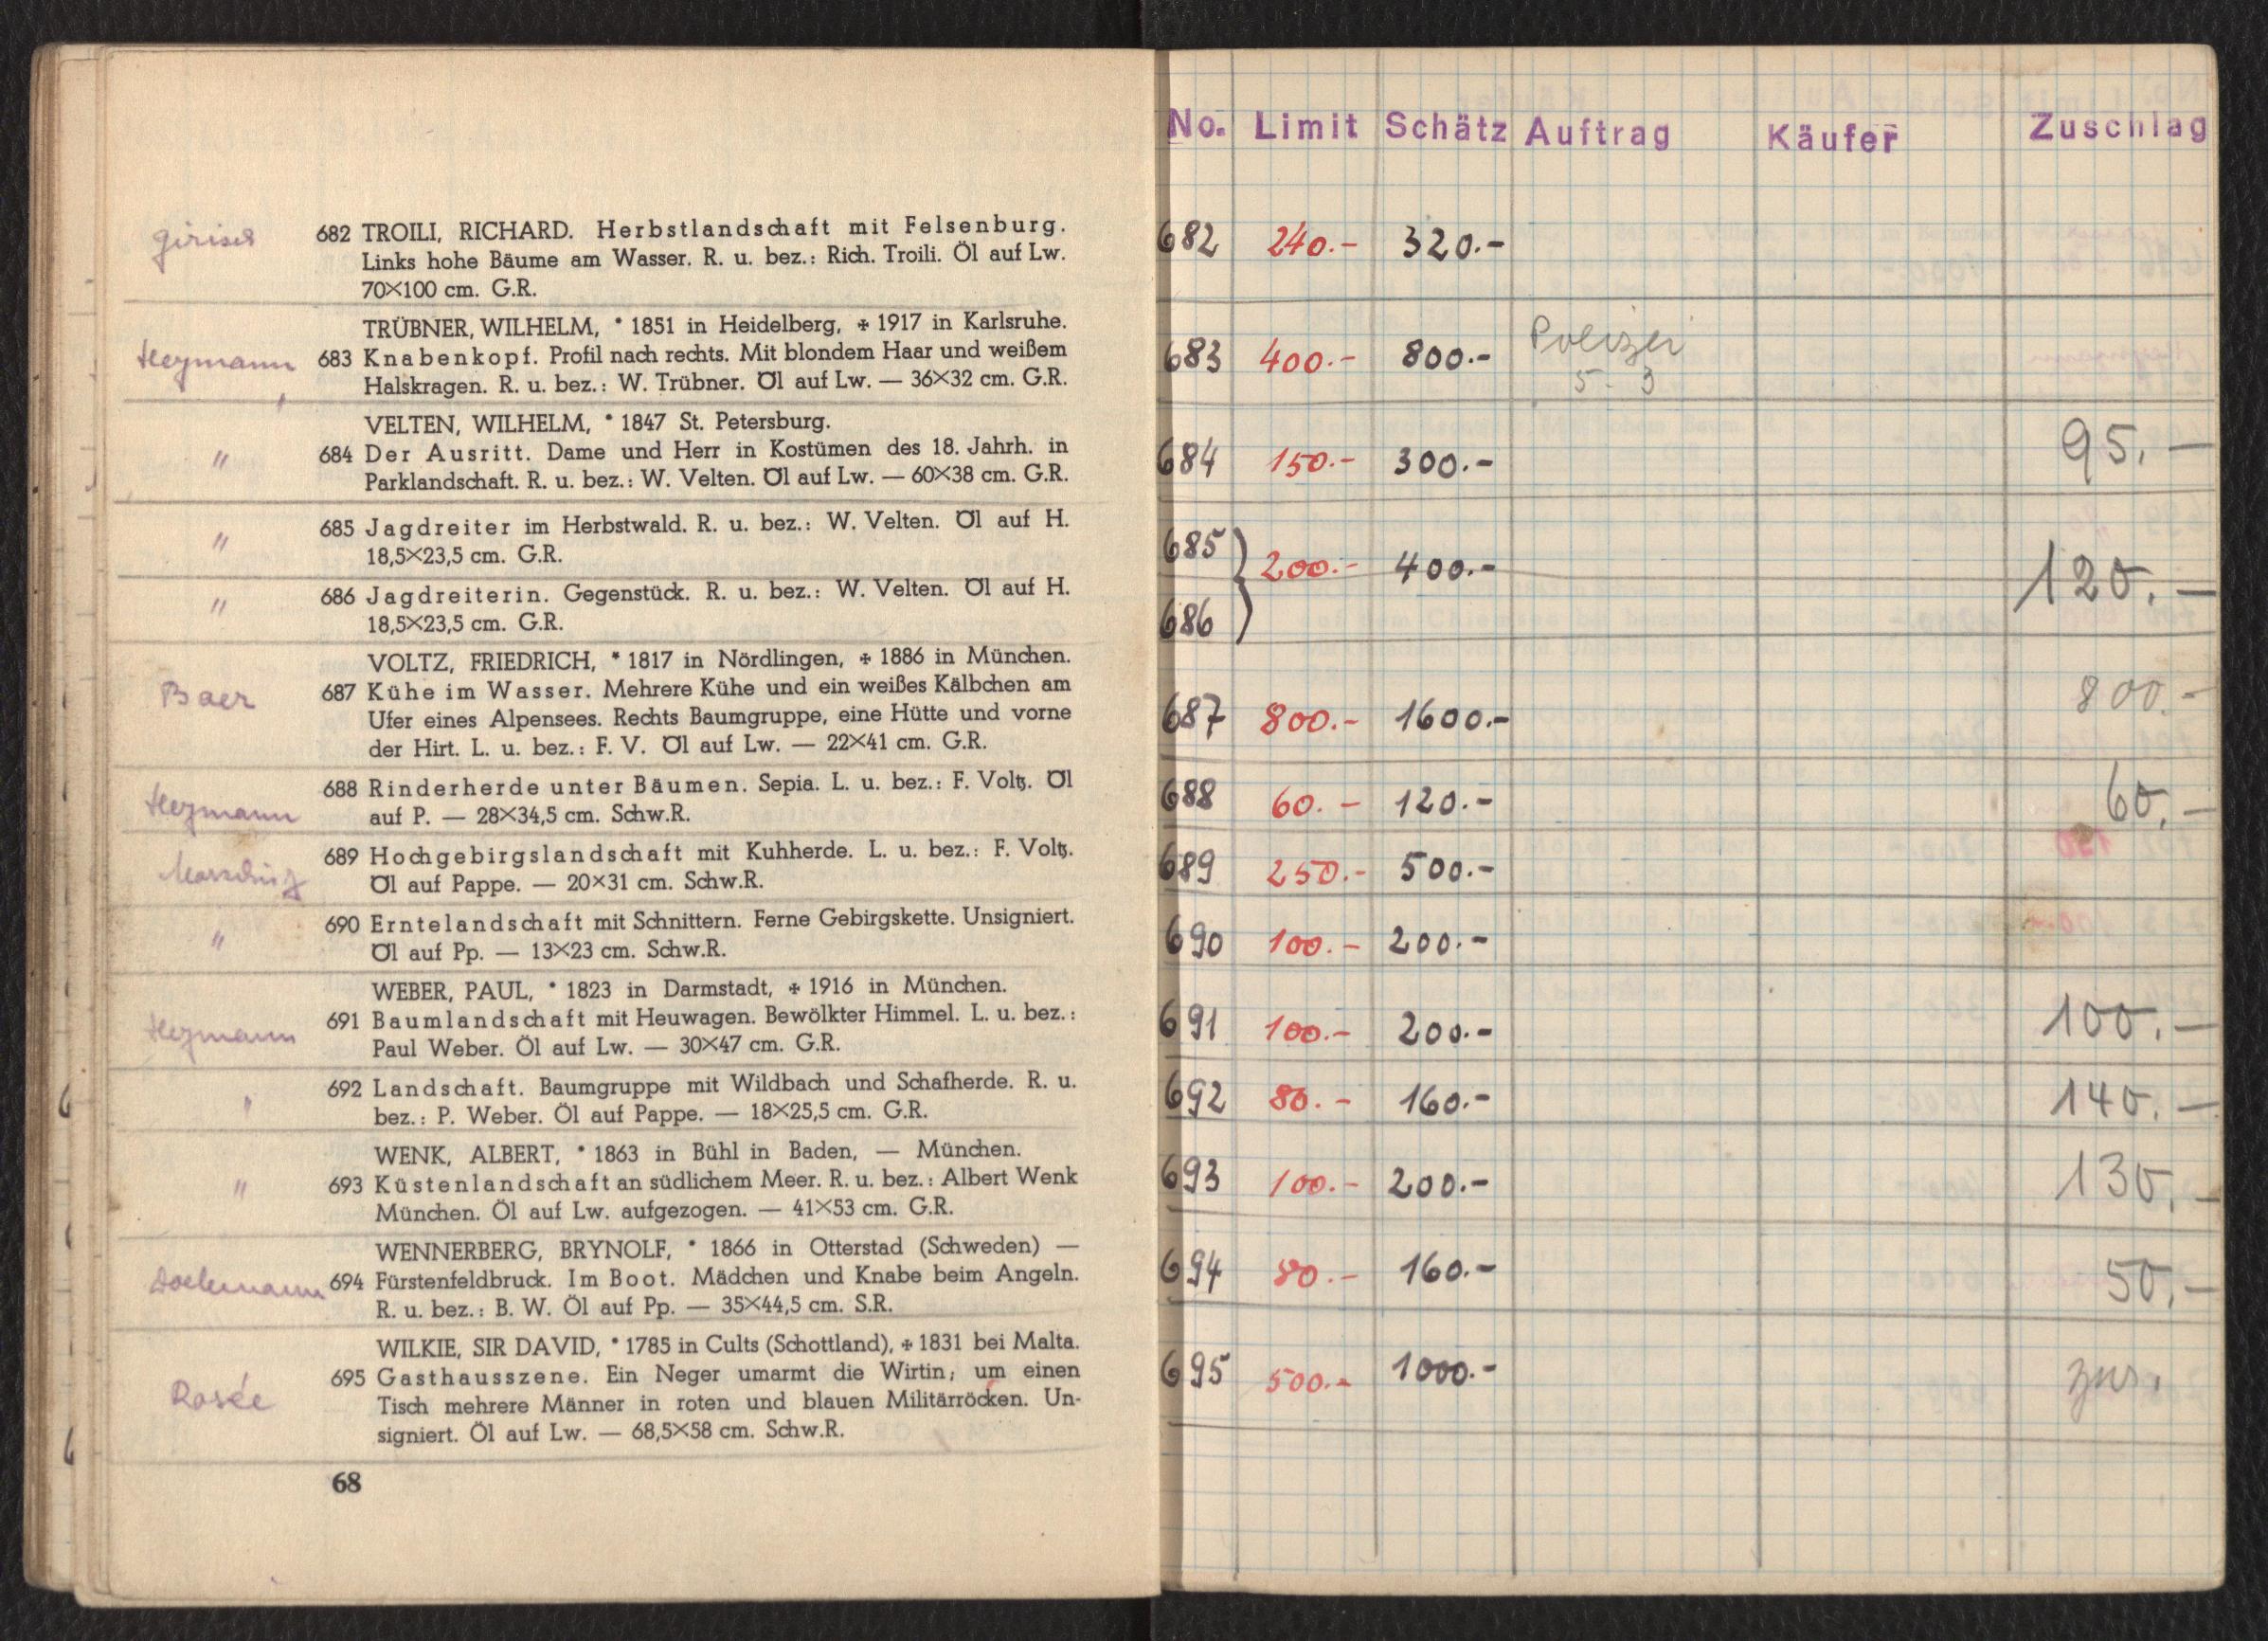 682 TROILI, RICHARD. Herbstlandschaft mit Felsenburg.
Links hohe Bäume am Wasser. R. u. bez.: Rich. Troili. Öl auf Lw.
70×100 cm. G.R.
TRÜBNER, WILHELM, * 1851 in Heidelberg, ✠ 1917 in Karlsruhe.
Heymann 683 Knabenkopf. Profil nach rechts. Mit blondem Haar und weißem
Halskragen. R. u. bez.: W. Trübner. Öl auf Lw. — 36×32 cm. G.R.
VELTEN, WILHELM, * 1847 St. Petersburg.
" 684 Der Ausritt. Dame und Herr in Kostümen des 18. Jahrh. in
Parklandschaft. R. u. bez.: W. Velten. Öl auf Lw. — 60×38 cm. G.R.
" 685 Jagdreiter im Herbstwald. R. u. bez.: W. Velten. Öl auf H.
18,5×23,5 cm. G.R.
" 686 Jagdreiterin. Gegenstück. R. u. bez.: W. Velten. Öl auf H.
18,5×23,5 cm. G.R.
VOLTZ, FRIEDRICH, * 1817 in Nördlingen, ✠ 1886 in München.
Baer 687 Kühe im Wasser. Mehrere Kühe und ein weißes Kälbchen am
Ufer eines Alpensees. Rechts Baumgruppe, eine Hütte und vorne
der Hirt. L. u. bez.: F. V. Öl auf Lw. — 22×41 cm. G.R.
Heymann 688 Rinderherde unter Bäumen. Sepia. L. u. bez.: F. Voltz. Öl
auf P. — 28×34,5 cm. Schw.R.
689 Hochgebirgslandschaft mit Kuhherde. L. u. bez.: F. Voltz.
Öl auf Pappe. — 20×31 cm. Schw.R.
" 690 Erntelandschaft mit Schnittern. Ferne Gebirgskette. Unsigniert.
Öl auf Pp. — 13×23 cm. Schw.R.
WEBER, PAUL, * 1823 in Darmstadt, ✠ 1916 in München.
Heymann 691 Baumlandschaft mit Heuwagen. Bewölkter Himmel. L. u. bez.:
Paul Weber. Öl auf Lw. — 30×47 cm. G.R.
692 Landschaft. Baumgruppe mit Wildbach und Schafherde. R. u.
bez.: P. Weber. Öl auf Pappe. — 18×25,5 cm. G.R.
WENK, ALBERT, * 1863 in Bühl in Baden, — München.
" 693 Küstenlandschaft an südlichem Meer. R. u. bez.: Albert Wenk
München. Öl auf Lw. aufgezogen. — 41×53 cm. G.R.
WENNERBERG, BRYNOLF, * 1866 in Otterstad (Schweden) —
694 Fürstenfeldbruck. Im Boot. Mädchen und Knabe beim Angeln.
R. u. bez.: B. W. Öl auf Pp. — 35×44,5 cm. S.R.
WILKIE, SIR DAVID, * 1785 in Cults (Schottland), ✠ 1831 bei Malta.
Rosée 695 Gasthausszene. Ein Neger umarmt die Wirtin; um einen
Tisch mehrere Männer in roten und blauen Militärröcken. Un-
signiert. Öl auf Lw. — 68,5×58 cm. Schw.R.
68
No. Limit Schätz Auftrag Käufer Zuschlag
682 240.- 320.-
683 400.- 800.- Polizei
5. 3
684 150.- 300.- 95.—
685
200.- 400.- 120.—
686
687 800.- 1600.- 800.-
688 60.- 120.- 60.—
689 250.- 500.-
690 100.- 200.-
691 100.- 200.- 100.—
692 80.- 160.- 140.—
693 100.- 200.- 130.-
694 80.- 160.- 50.—
695 500.- 1000.- zur.